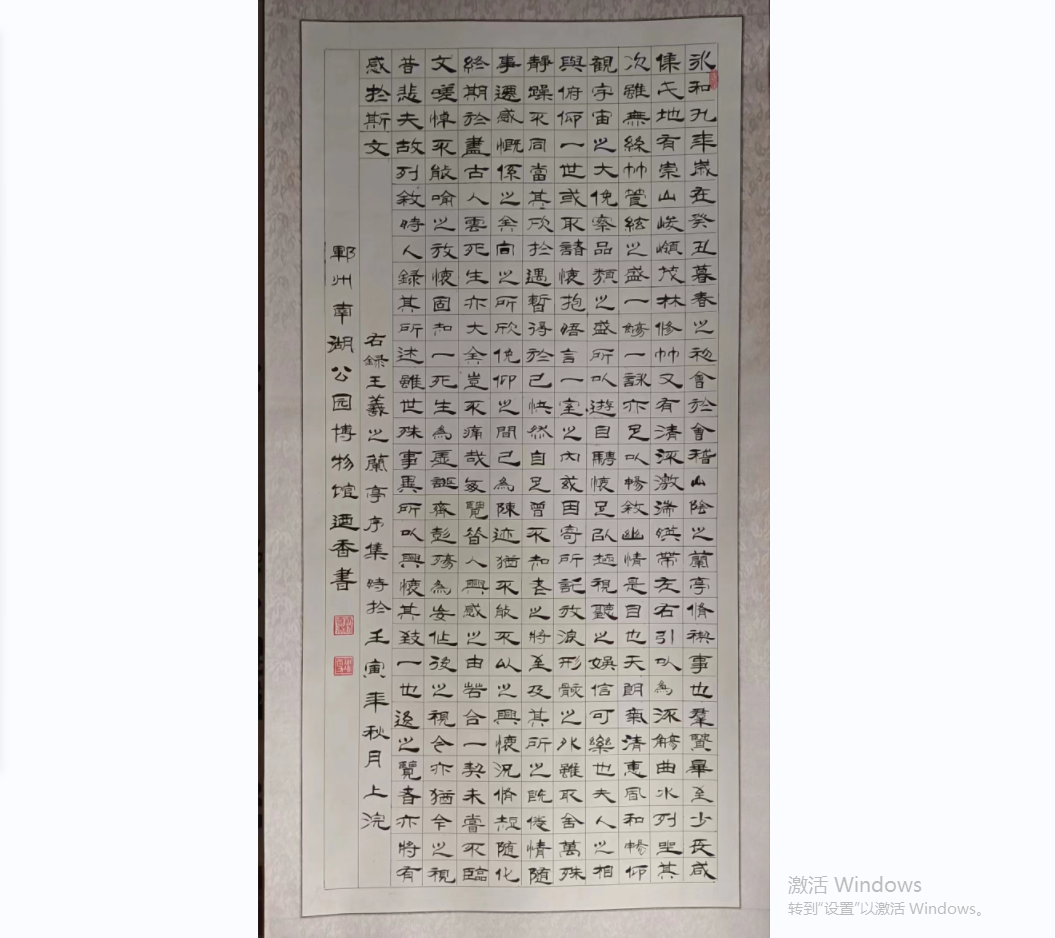 永和九年歲在癸丑暮春之初會於會稽山陰之蘭亭脩禊事也羣賢畢至少長咸
集此地有崇山峻領茂林修竹又有清流激湍暎帶左右引以為流觴曲水列坐其
次雖無絲竹管絃之盛一觴一詠亦足以暢敘幽情是日也天朗氣清惠風和暢仰
觀宇宙之大俛察品類之盛所以遊目騁懷足以極視聽之娛信可樂也夫人之相
與俯仰一世或取諸懷抱悟言一室之內或因寄所託放浪形骸之外雖取舍萬殊
靜躁不同當其欣於遇暫得於己快然自足曾不知老之將至及其所之既倦情隨
事遷感慨係之矣向之所欣俛仰之間已為陳迹猶不能不以之興懷況脩短隨化
終期於盡古人雲死生亦大矣豈不痛哉每覽昔人興感之由若合一契未嘗不臨
文嗟悼不能喻之於懷固知一死生為虛誕齊彭殤為妄作後之視今亦猶今之視
昔悲夫故列敘時人錄其所述雖世殊事異所以興懷其致一也後之覽者亦將有
感於斯文
右録王羲之蘭亭序集時於壬寅年秋月上浣
鄆州南湖公园博物馆迺香書
激活 Windows
转到“设置”以激活 Windows。